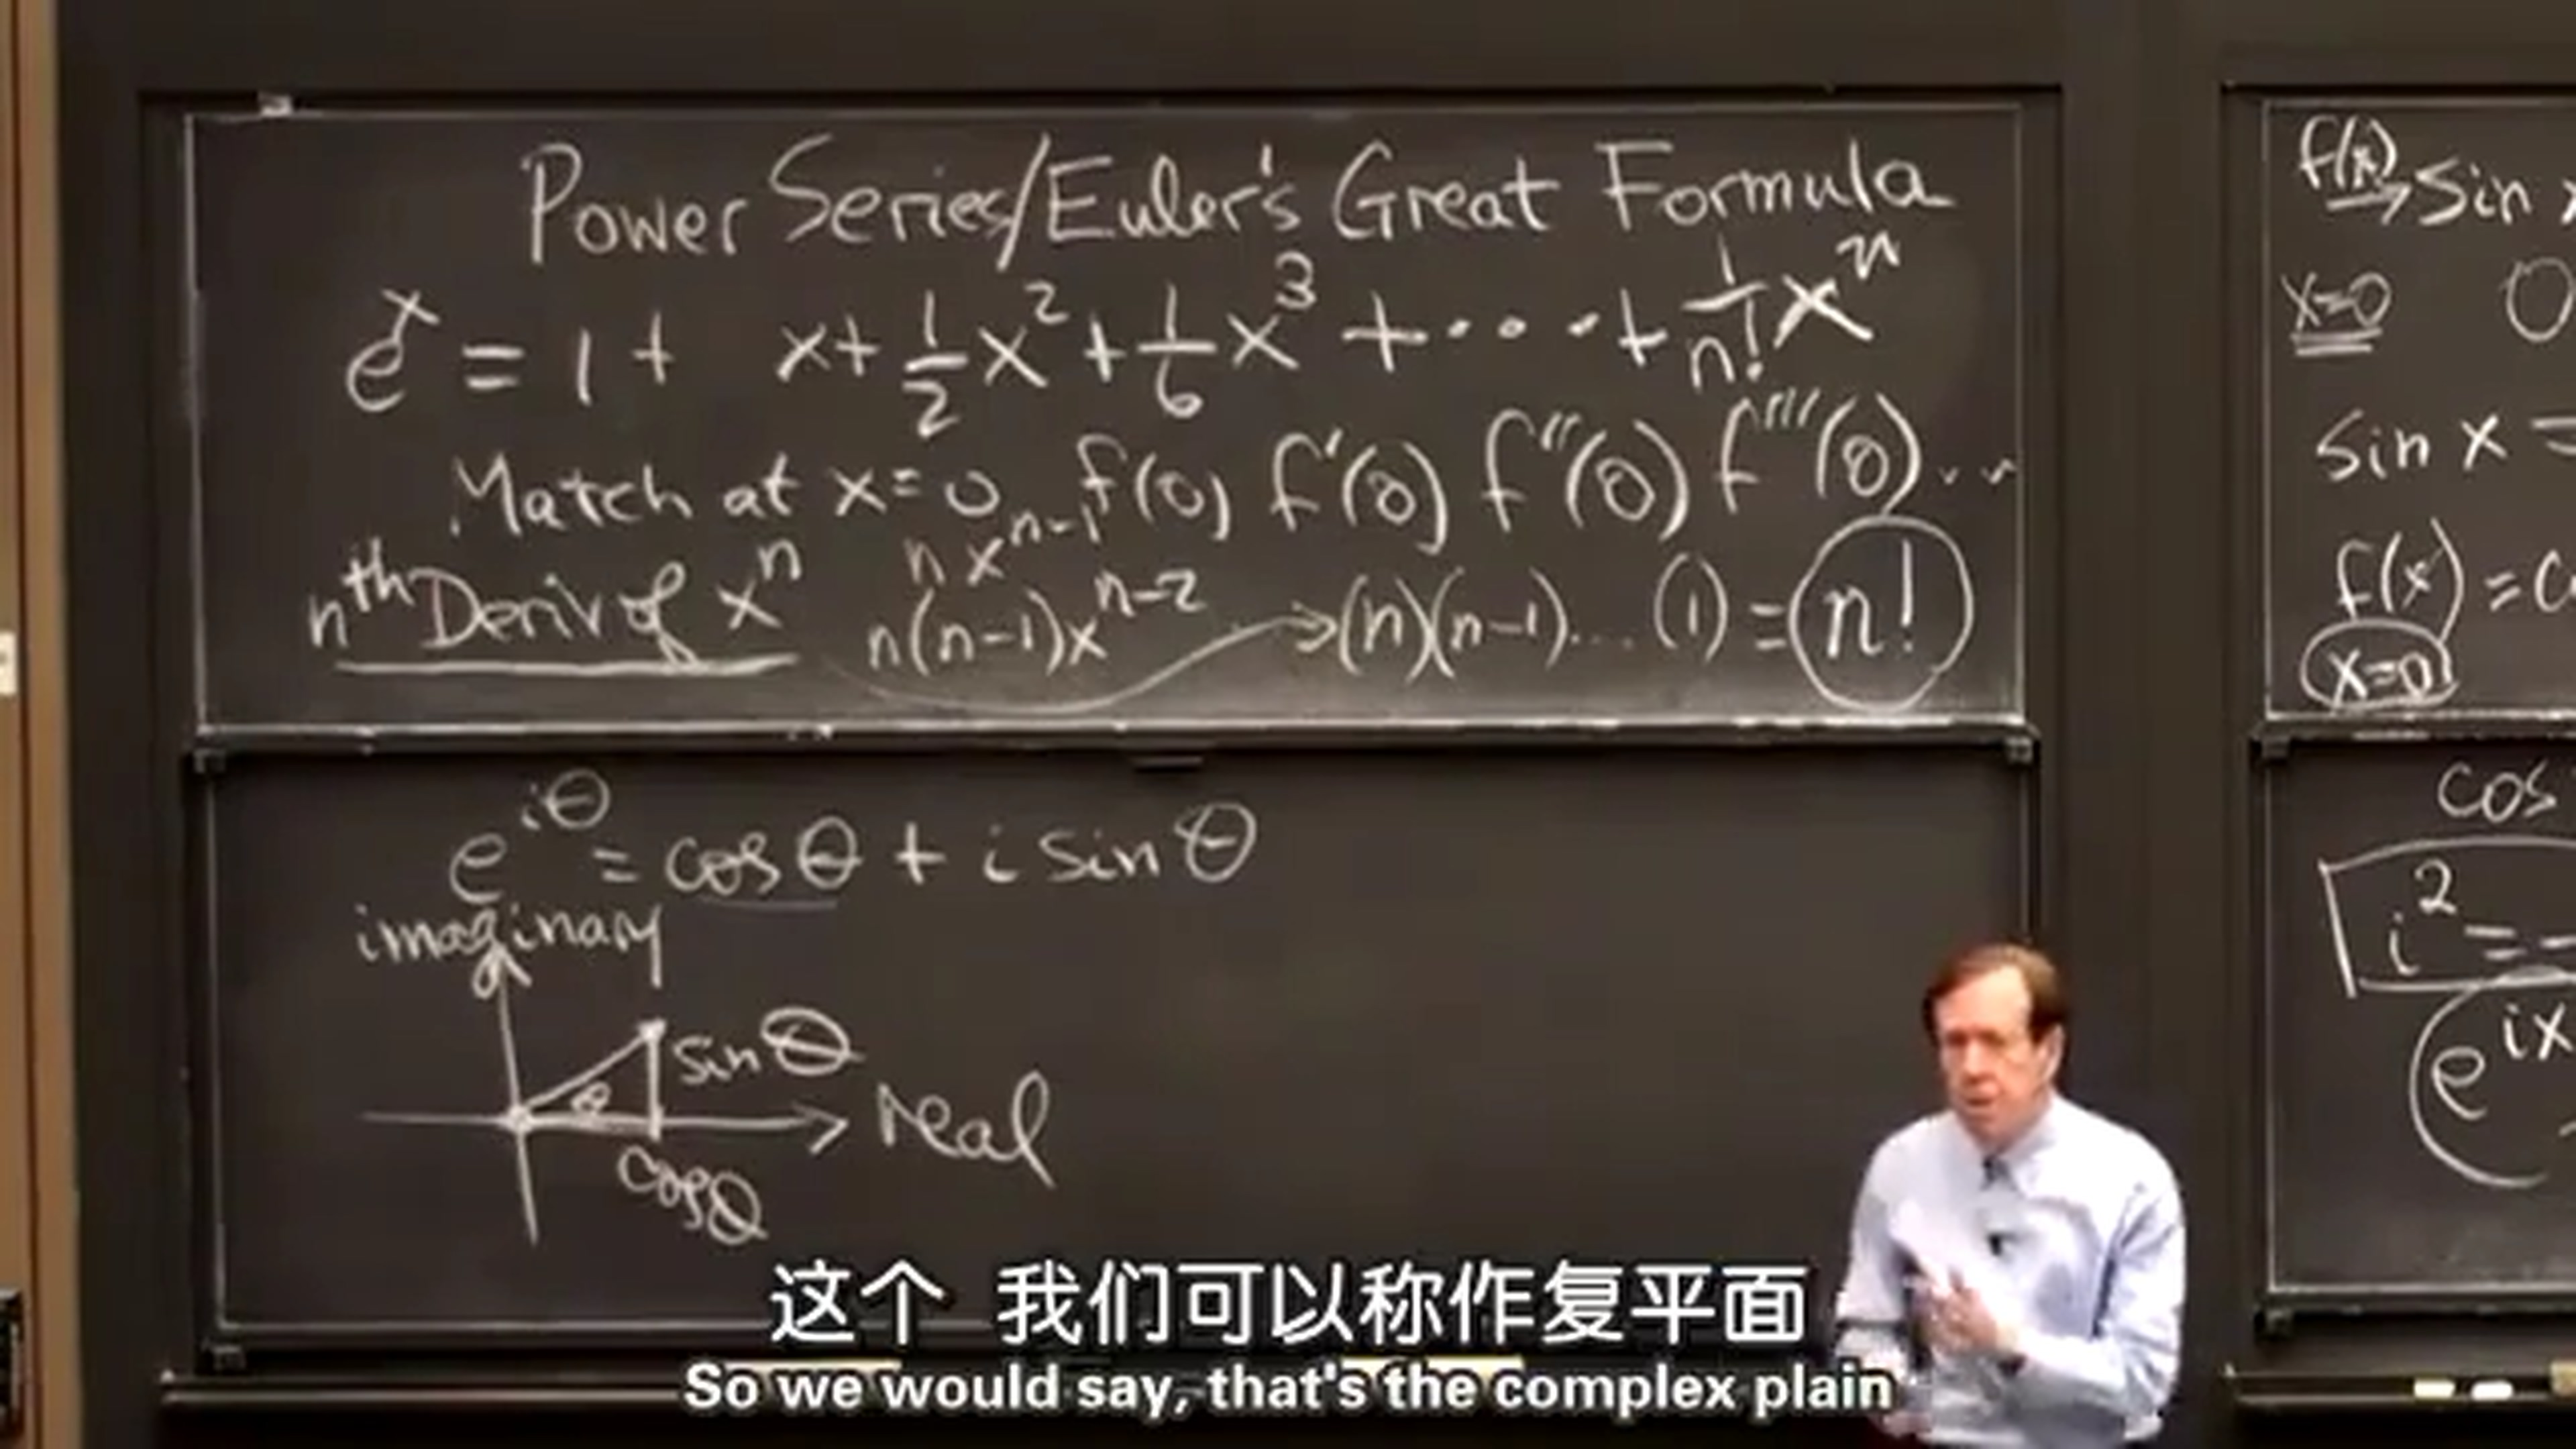 Power Series/Euler's Great Formula
eˣ = 1 + x + 1/2 x² + 1/6 x³ + ··· + 1/n! xⁿ
Match at x=0 f(0) f′(0) f″(0) f‴(0)...
nth Deriv of xⁿ nxⁿ⁻¹
n(n-1)xⁿ⁻² →(n)(n-1)...(1) = n!
e^{iθ} = cosθ + i sinθ
imaginary
sinθ
θ
real
cosθ
f(x) → Sin x
x=0 0
sin x =
f(x) =
x=0
cos
i² = -
e^{ix}
这个 我们可以称作复平面
So we would say, that's the complex plain